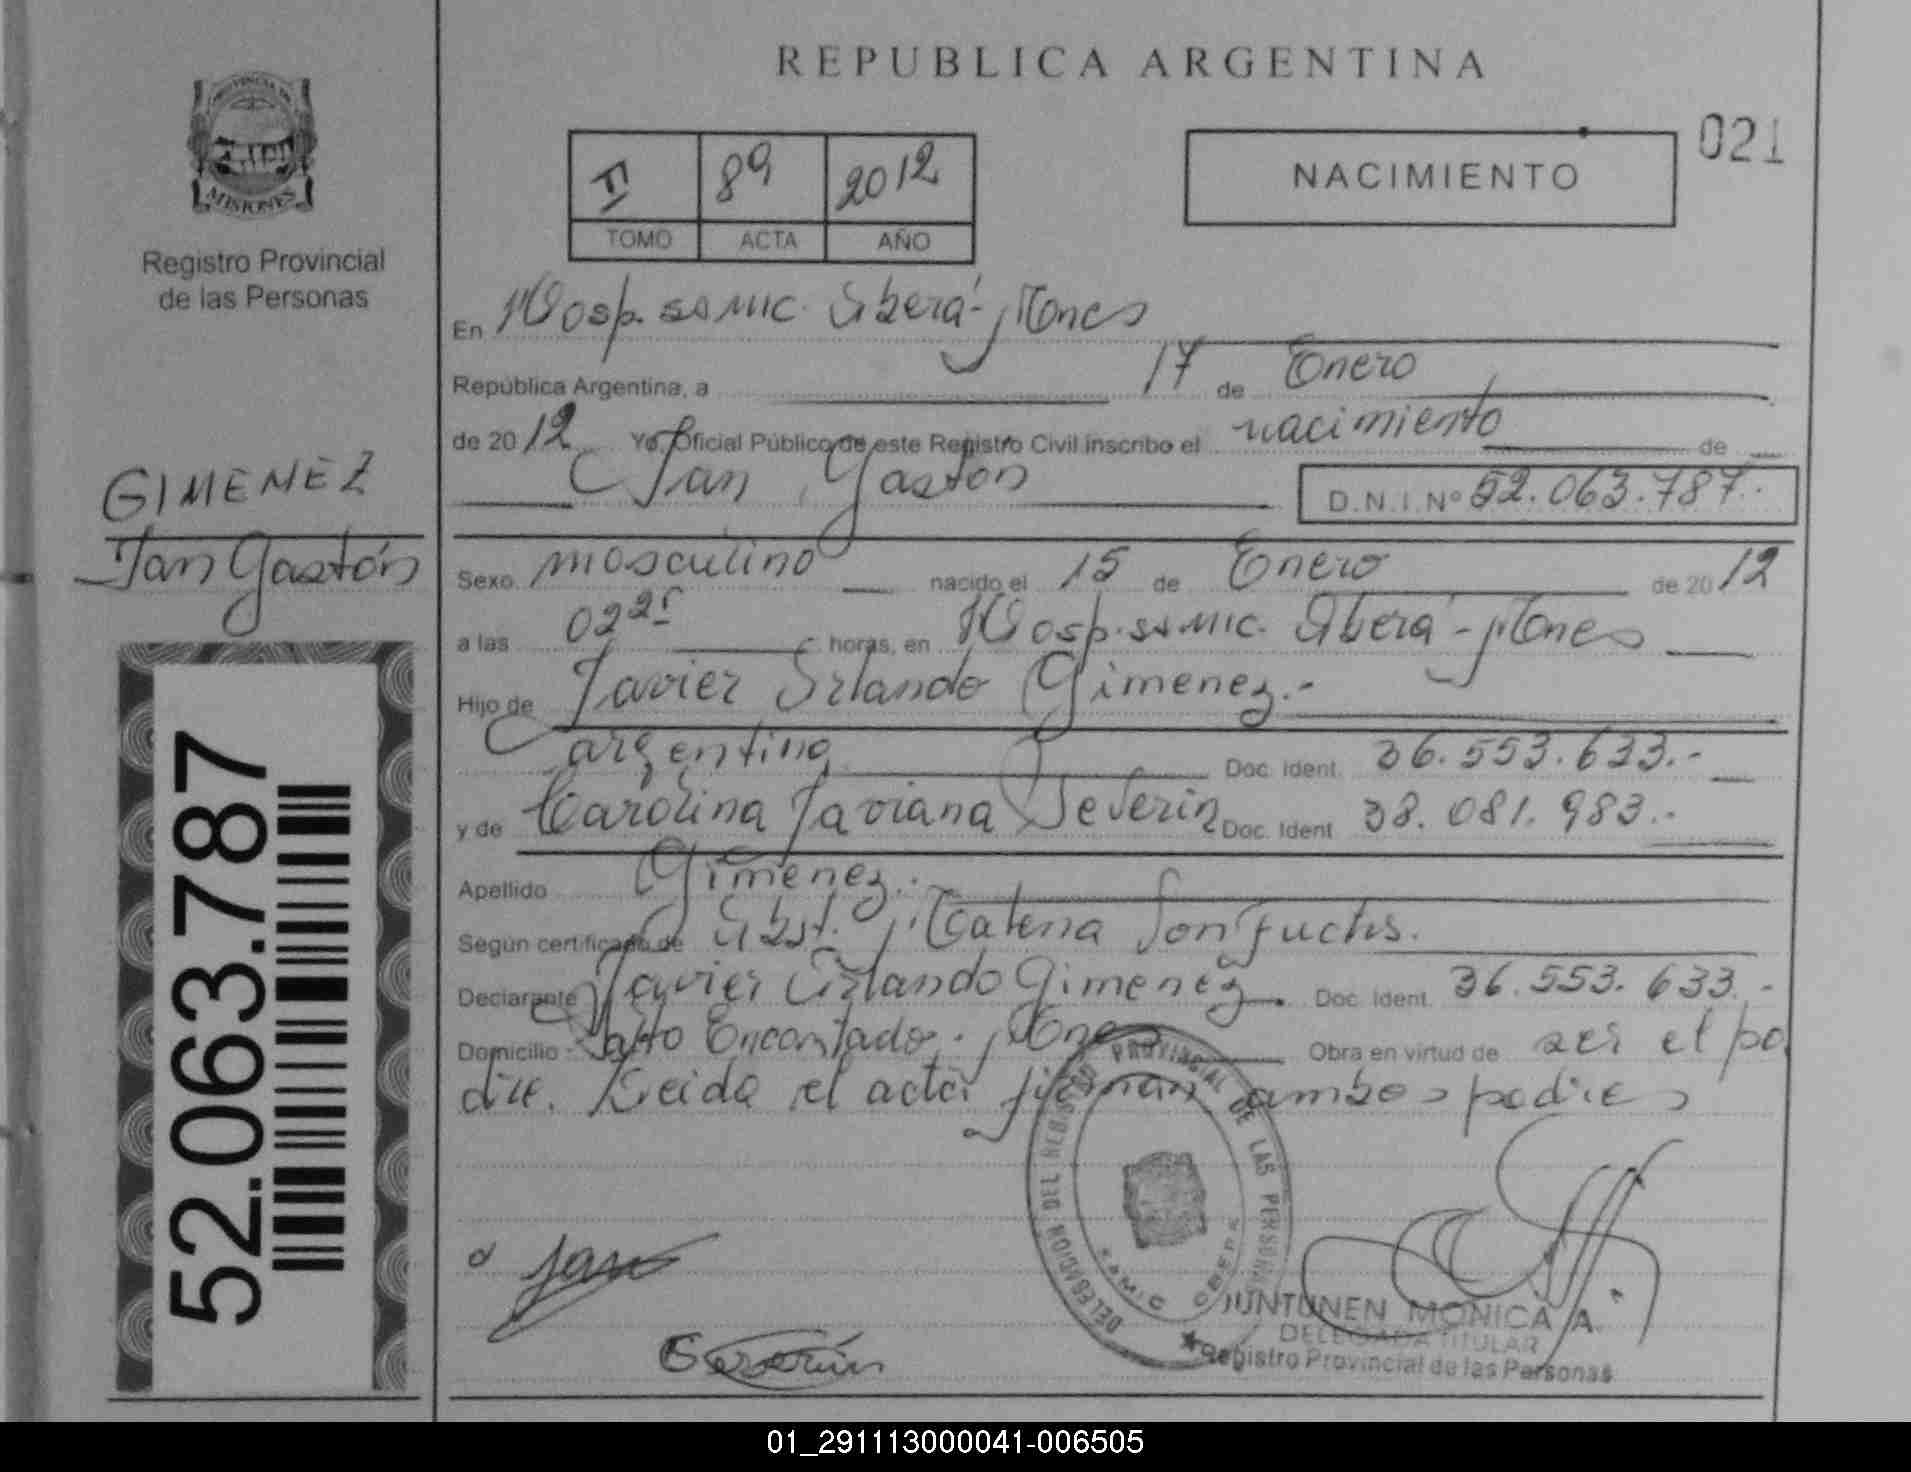 REPUBLICA ARGENTINA
PROVINCIA DE
MISIONES
Registro Provincial
de las Personas
II 89 2012
TOMO ACTA AÑO
NACIMIENTO
021
En Hosp. SAMIC. Oberá - Mnes
República Argentina, a 17 de Enero
de 2012 Yo, Oficial Público de este Registro Civil inscribo el nacimiento de
Ian Gastón D.N.I. Nº 52.063.787.
GIMENEZ
Ian Gastón
Sexo masculino nacido el 15 de Enero de 2012
a las 02 25 horas, en Hosp. SAMIC. Oberá - Mnes
Hijo de Javier Orlando Gimenez.-
argentino Doc. Ident. 36.553.633.-
y de Carolina Faviana Severin Doc. Ident 38.081.983.-
Apellido Gimenez.-
Según certificado de Obst. Katena Fuchs.
Declarante Javier Orlando Gimenez Doc. Ident. 36.553.633.-
Domicilio Salto Encantado. Mnes Obra en virtud de ser el pa
dre. Leida el acta firman ambos padres
52.063.787
DELEGACION DEL REGISTRO PROVINCIAL DE LAS PERSONAS
SAMIC OBERA
Severin
JUNTUNEN MONICA A.
DELEGADA TITULAR
Registro Provincial de las Personas
01_291113000041-006505